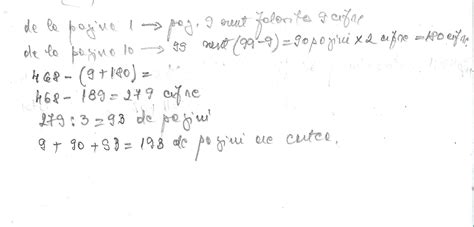 de la pagina 1 → pag. 9 sunt folosite 9 cifre
de la pagina 10 → 99 sunt (99-9) = 90 pagini × 2 cifre = 180 cifre
468 - (9 + 180) =
468 - 189 = 279 cifre
279 : 3 = 93 de pagini
9 + 90 + 93 = 198 de pagini are cartea.